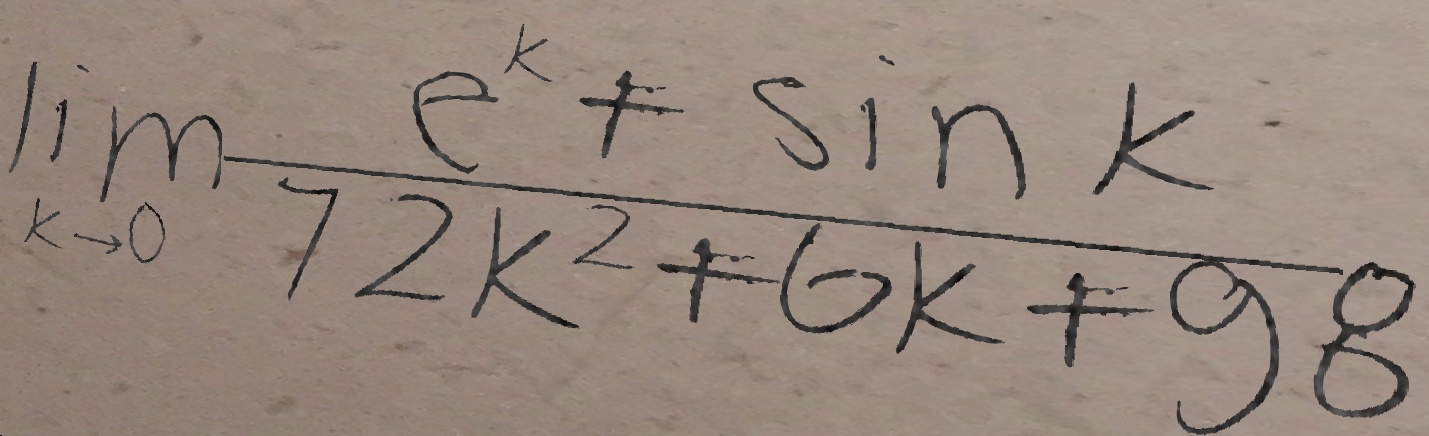 lim k→0 (e^k + sin k) / (72k^2 + 6k + 98)